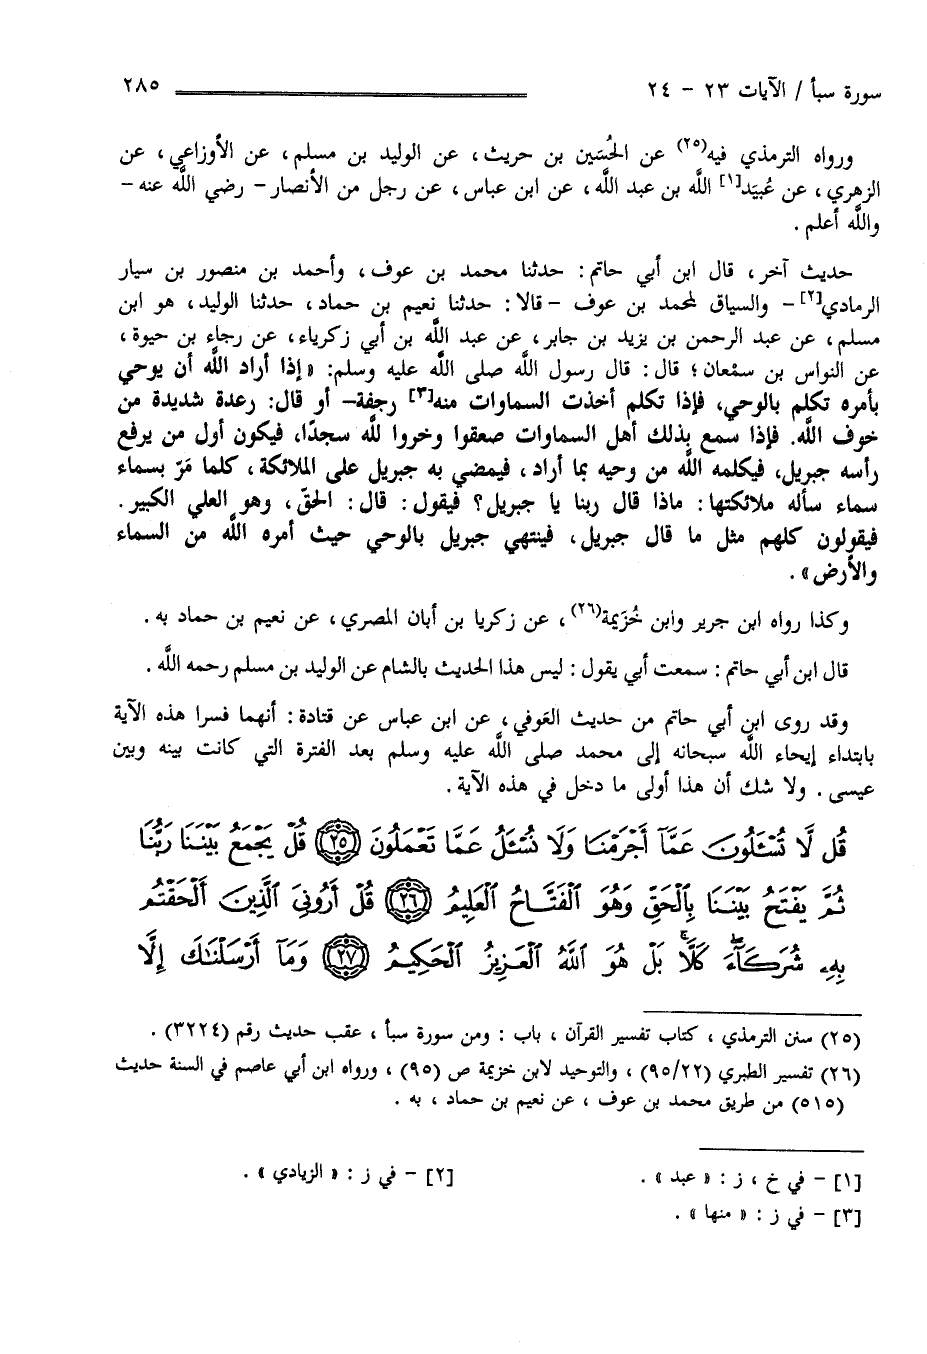 سورة سبأ / الآيات ٢٣ - ٢٤ ٢٨٥
ورواه الترمذي فيه(٢٥) عن الحُسَين بن حريث، عن الوليد بن مسلم، عن الأوزاعي، عن
الزهري، عن عُبيَد[١] اللَّه بن عبد اللَّه، عن ابن عباس، عن رجل من الأنصار- رضي اللَّه عنه -
واللَّه أعلم .
حديث آخر، قال ابن أبي حاتم: حدثنا محمد بن عوف، وأحمد بن منصور بن سيار
الرمادي[٢]- والسياق لمحمد بن عوف - قالا: حدثنا نعيم بن حماد، حدثنا الوليد، هو ابن
مسلم، عن عبد الرحمن بن يزيد بن جابر، عن عبد اللَّه بن أبي زكرياء، عن رجاء بن حيوة،
عن النواس بن سمْعان؛ قال: قال رسول اللَّه صلى اللَّه عليه وسلم: «إذا أراد اللَّه أن يوحي
بأمره تكلم بالوحي، فإذا تكلم أخذت السماوات منه[٣] رجفة- أو قال: رعدة شديدة من
خوف اللَّه. فإذا سمع بذلك أهل السماوات صعقوا وخروا للَّه سجدًا، فيكون أول من يرفع
رأسه جبريل، فيكلمه اللَّه من وحيه بما أراد، فيمضي به جبريل على الملائكة، كلما مَرّ بسماء
سماء سأله ملائكتها: ماذا قال ربنا يا جبريل؟ فيقول: قال: الحقّ، وهو العلي الكبير.
فيقولون كلهم مثل ما قال جبريل، فينتهي جبريل بالوحي حيث أمره اللَّه من السماء
والأرض» .
وكذا رواه ابن جرير وابن خُزَيمة(٢٦)، عن زكريا بن أبان المصري، عن نعيم بن حماد به .
قال ابن أبي حاتم: سمعت أبي يقول: ليس هذا الحديث بالشام عن الوليد بن مسلم رحمه اللَّه .
وقد روى ابن أبي حاتم من حديث العَوفي، عن ابن عباس عن قتادة: أنهما فسرا هذه الآية
بابتداء إيحاء اللَّه سبحانه إلى محمد صلى اللَّه عليه وسلم بعد الفترة التي كانت بينه وبين
عيسى. ولا شك أن هذا أولى ما دخل في هذه الآية .
قُل لَّا تُسْـَٔلُونَ عَمَّآ أَجْرَمْنَا وَلَا نُسْـَٔلُ عَمَّا تَعْمَلُونَ ٢٥ قُلْ يَجْمَعُ بَيْنَنَا رَبُّنَا
ثُمَّ يَفْتَحُ بَيْنَنَا بِٱلْحَقِّ وَهُوَ ٱلْفَتَّاحُ ٱلْعَلِيمُ ٢٦ قُلْ أَرُونِىَ ٱلَّذِينَ أَلْحَقْتُم
بِهِۦ شُرَكَآءَ كَلَّا بَلْ هُوَ ٱللَّهُ ٱلْعَزِيزُ ٱلْحَكِيمُ ٢٧ وَمَآ أَرْسَلْنَٰكَ إِلَّا
(٢٥) سنن الترمذي ، كتاب تفسير القرآن ، باب : ومن سورة سبأ ، عقب حديث رقم (٣٢٢٤) .
(٢٦) تفسير الطبري (٩٥/٢٢) ، والتوحيد لابن خزيمة ص (٩٥) ، ورواه ابن أبي عاصم في السنة حديث
(٥١٥) من طريق محمد بن عوف ، عن نعيم بن حماد ، به .
[١] - في خ ، ز : « عبد » . [٢] - في ز : « الزيادي » .
[٣] - في ز : « منها » .